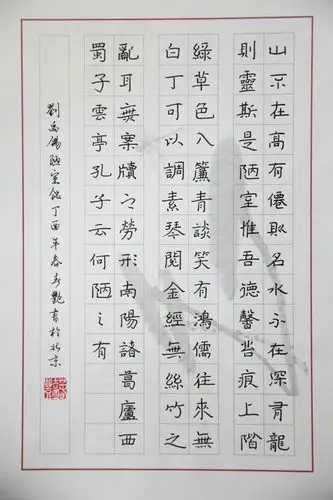 山不在高有僊則名水不在深有龍
則靈斯是陋室惟吾德馨苔痕上階
綠草色入簾青談笑有鴻儒往來無
白丁可以調素琴閱金經無絲竹之
亂耳無案牘之勞形南陽諸葛廬西
蜀子雲亭孔子云何陋之有
劉禹錫陋室銘丁酉年春艷書於北京